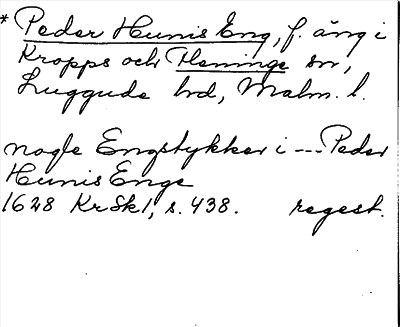 * Peder Hunis Eng, f. äng i
Kropps och Fleninge sn,
Luggude hd, Malm. l.
nogle Engstykker i --- Peder
Hunis Enge
1628 KrSkl, s. 438. regest.